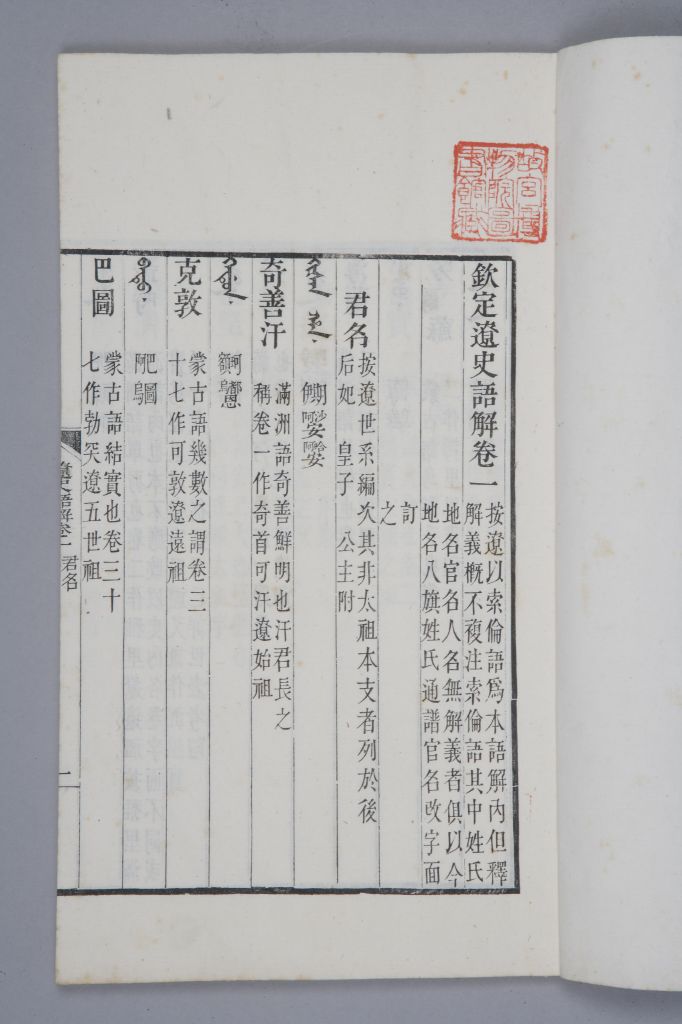 故宮博
物院圖
書館藏
欽定遼史語解卷一
按遼以索倫語爲本語解內但釋
解義概不複注索倫語其中姓氏
地名官名人名無解義者俱以今
地名八旗姓氏通譜官名改字面
訂
之
君名
按遼世系編次其非太祖本支者列於後
后妃 皇子 公主附
奇善汗
滿洲語奇善鮮明也汗君長之
稱卷一作奇首可汗遼始祖
克敦
蒙古語幾數之謂卷三
十七作可敦遼遠祖
巴圖
蒙古語結實也卷三十
七作勃突遼五世祖
遼史語解卷一 君名
二